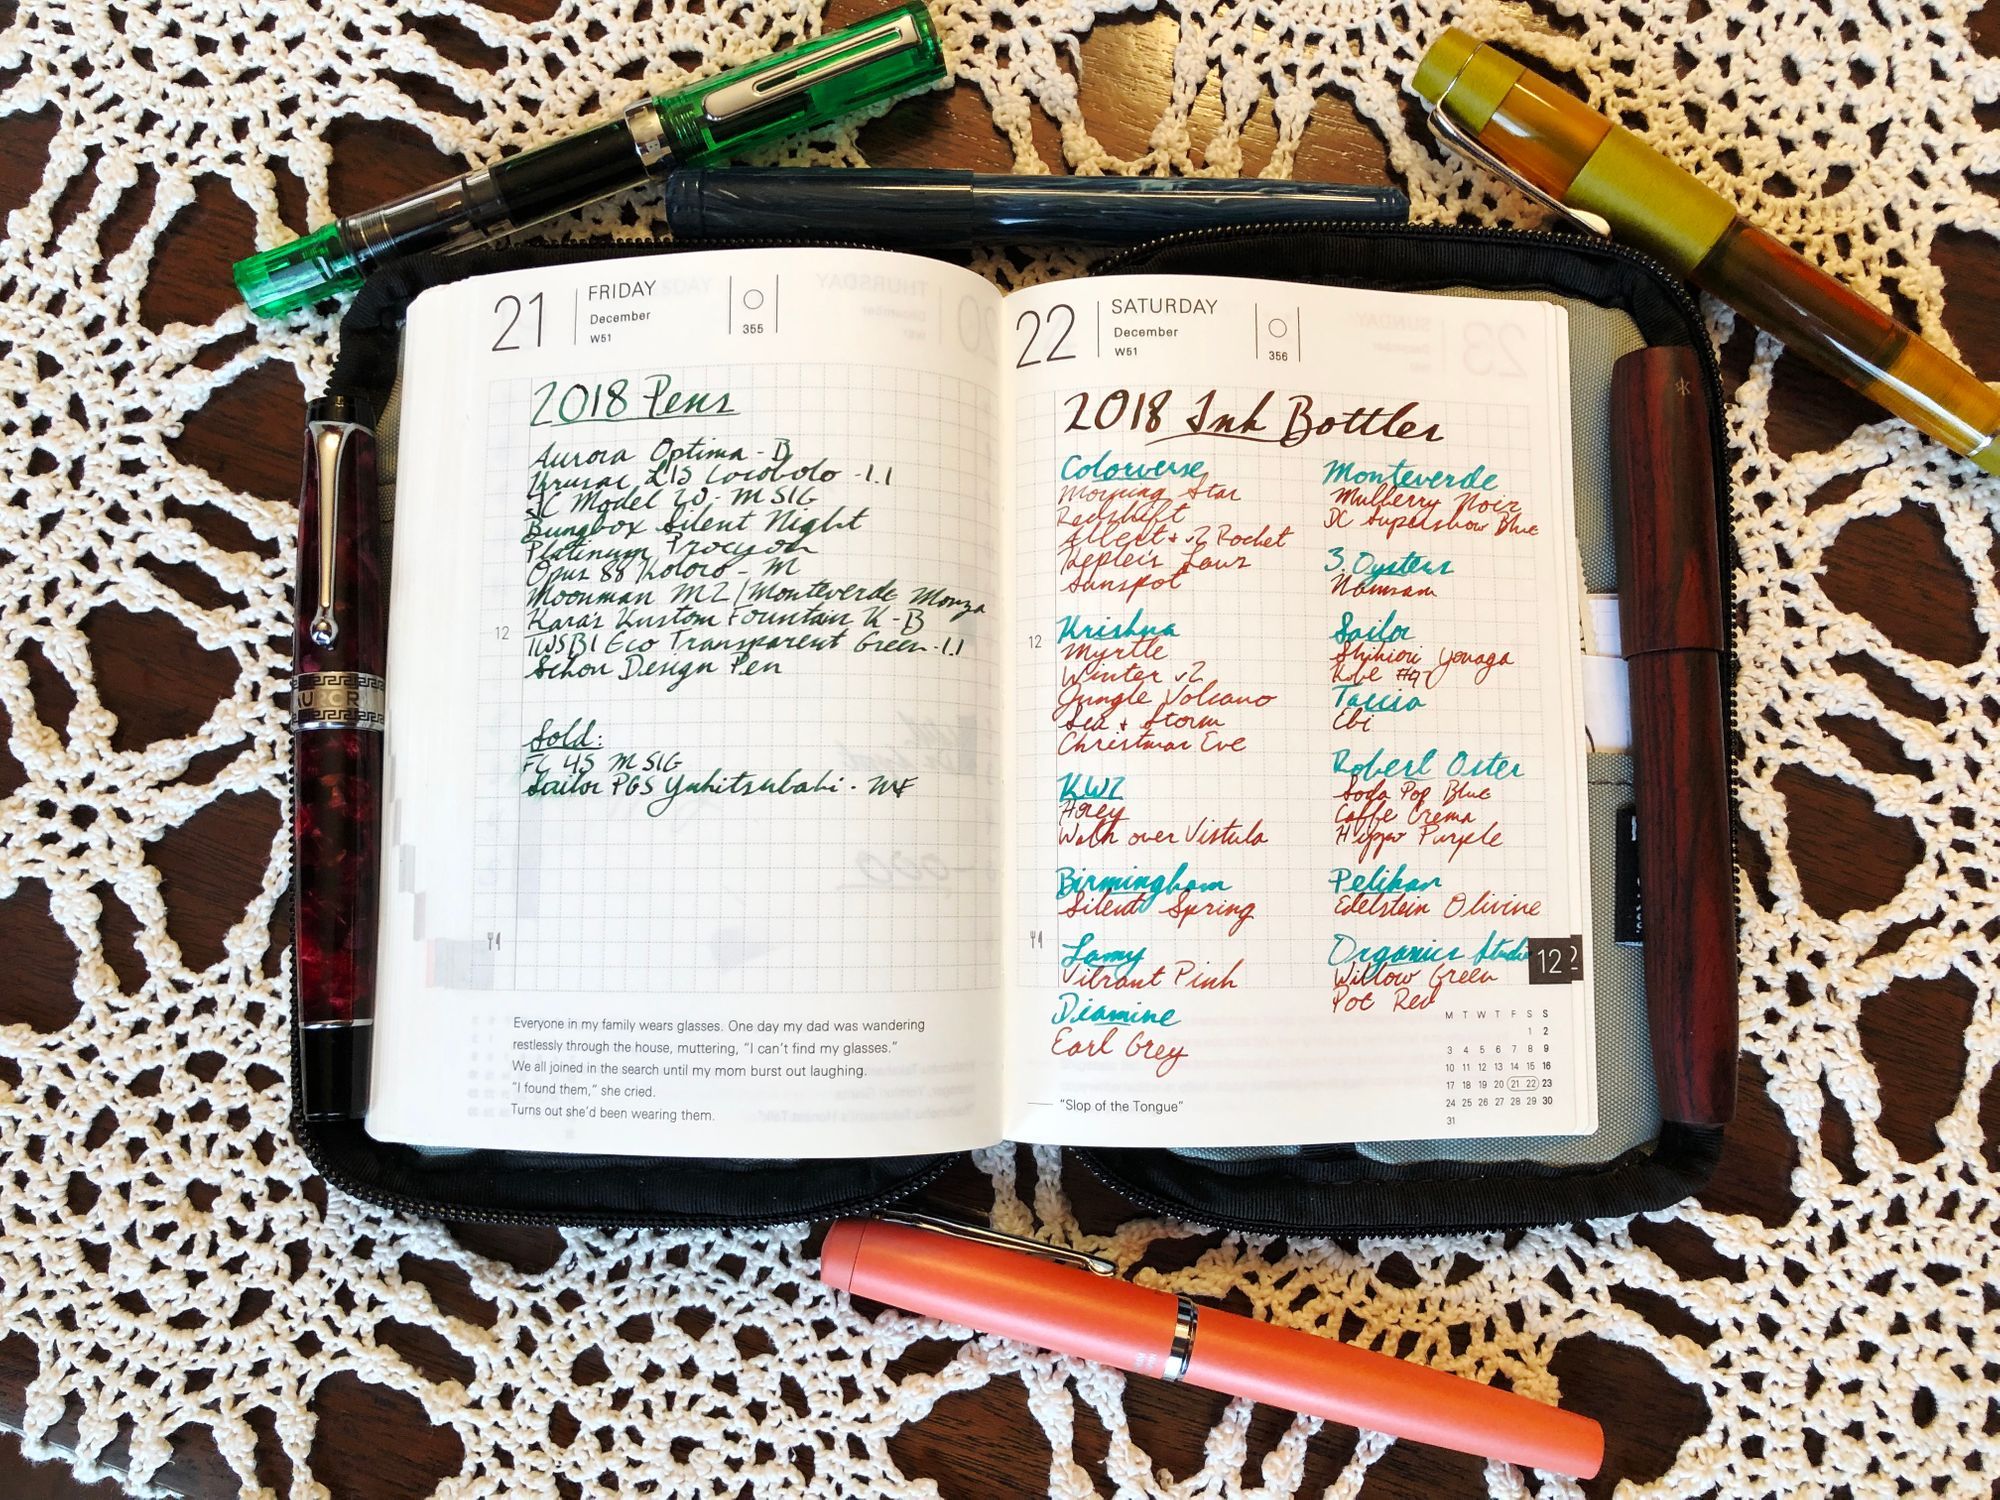 21
FRIDAY
December
W51
355
2018 Pens
Aurora Optima - B
Krusac L15 Cocobolo - 1.1
FC Model 20 - M SIG
Bungbox Silent Night
Platinum Procyon
Opus 88 Koloro - M
Moonman M2 / Monteverde Monza
Kara's Kustom Fountain K - B
TWSBI Eco Transparent Green - 1.1
Schon Design Pen
12
Sold:
FC 45 M SIG
Sailor PGS Yukitsubaki - MF
Everyone in my family wears glasses. One day my dad was wandering
restlessly through the house, muttering, "I can't find my glasses."
We all joined in the search until my mom burst out laughing.
"I found them," she cried.
Turns out she'd been wearing them.
22
SATURDAY
December
W51
356
2018 Ink Bottles
Colorverse
Morning Star
Redshift
Albert + v2 Rocket
Kepler's Laws
Sunspot
12
Krishna
Myrtle
Winter v2
Jungle Volcano
Sea + Storm
Christmas Eve
KWZ
Walk over Vistula
Birmingham
Silent Spring
Lamy
Vibrant Pink
Diamine
Earl Grey
Monteverde
Mulberry Noir
DC Supershow Blue
3 Oysters
Namsan
Sailor
Shikiori Yonaga
Kobe
Taccia
Ebi
Robert Oster
Soda Pop Blue
Caffe Crema
Hippo Purple
Pelikan
Edelstein Olivine
Organics Studio
Willow Green
Pot Red
12
M T W T F S S
1 2
3 4 5 6 7 8 9
10 11 12 13 14 15 16
17 18 19 20 21 22 23
24 25 26 27 28 29 30
31
"Slop of the Tongue"